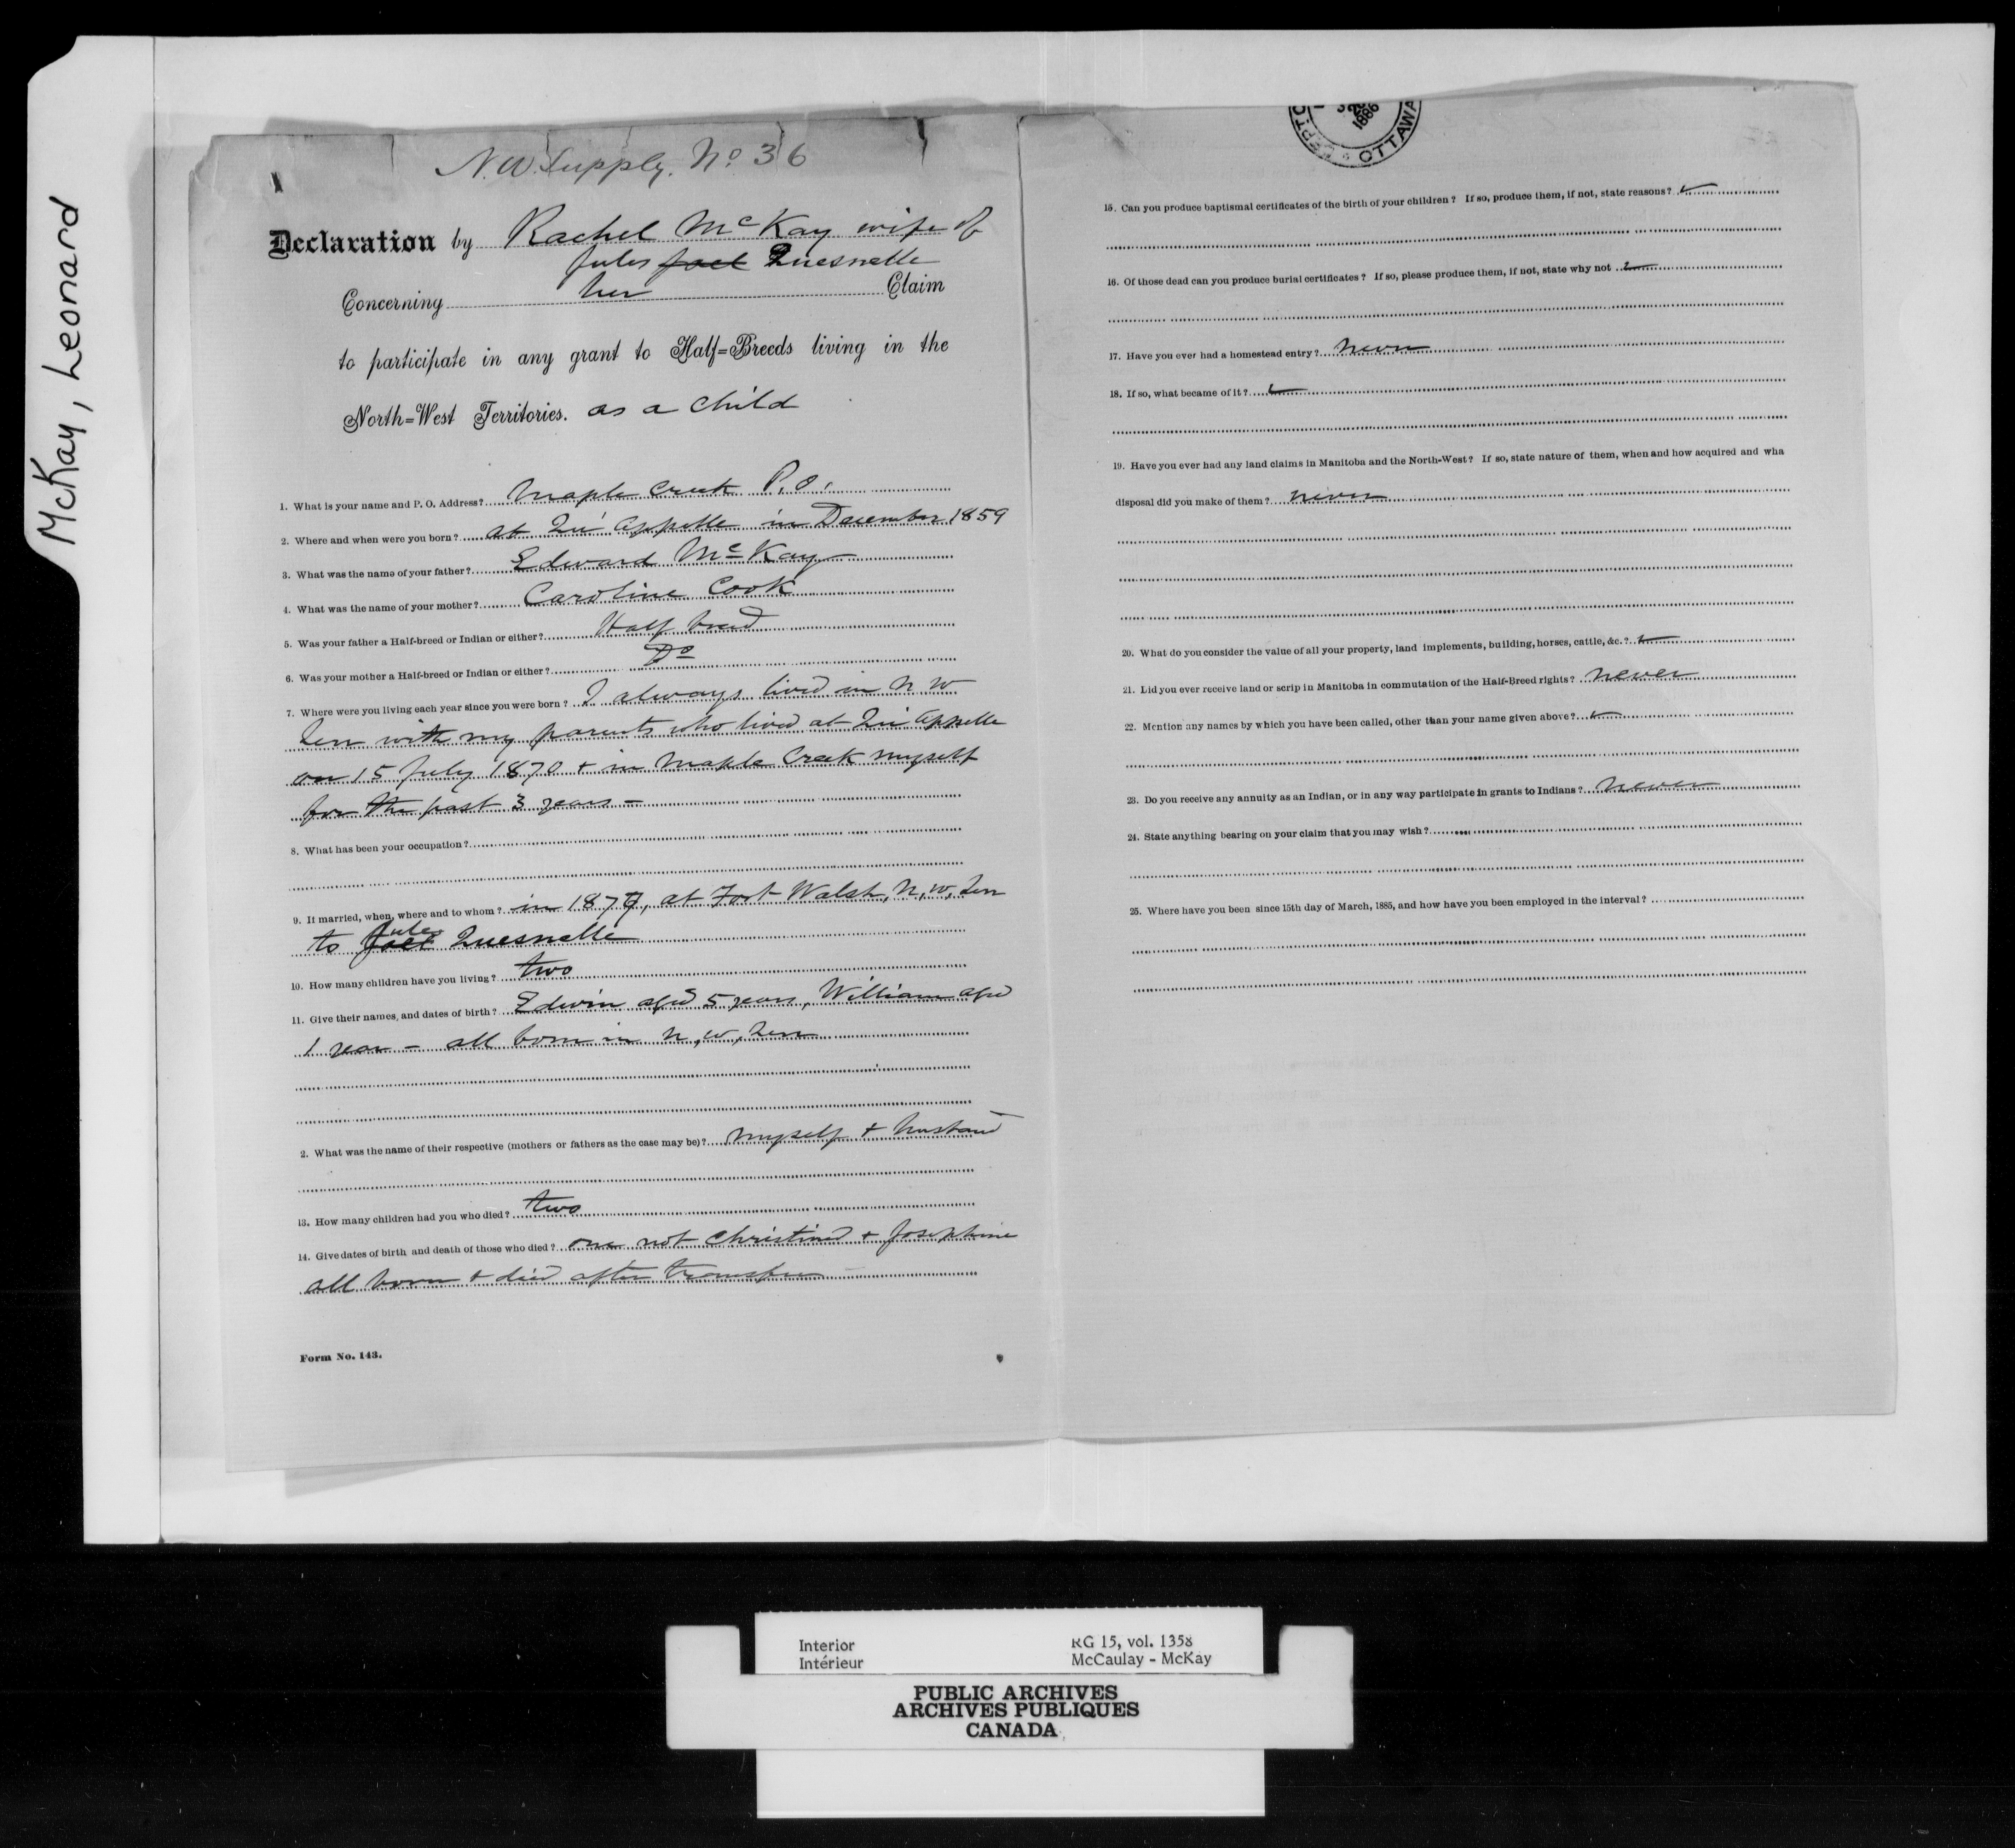 McKay, Leonard
N.W. Supply. No 36
Declaration by Rachel McKay wife of
Jules Joel Quesnelle
Concerning her Claim
to participate in any grant to Half=Breeds living in the
North=West Territories. as a child
1. What is your name and P. O. Address? Maple Creek P.O.
2. Where and when were you born? at Qu'Appelle in December 1859
3. What was the name of your father? Edward McKay
4. What was the name of your mother? Caroline Cook
5. Was your father a Half-breed or Indian or either? Half breed
6. Was your mother a Half-breed or Indian or either? Do
7. Where were you living each year since you were born? I always lived in N W
Terr with my parents who lived at Qu'Appelle
on 15 July 1870 + in Maple Creek myself
for the past 3 years -
8. What has been your occupation?
9. If married, when, where and to whom? in 1877, at Fort Walsh, N, W, Terr
to Joel Jules Quesnelle
10. How many children have you living? two
11. Give their names, and dates of birth? Edwin aged 5 years, William aged
1 year - all born in N, W, Terr
2. What was the name of their respective (mothers or fathers as the case may be)? myself + husband
13. How many children had you who died? two
14. Give dates of birth and death of those who died? one not christined + Josephine
all born + died after transfer
Form No. 143.
DEPT OTTAWA
1886
15. Can you produce baptismal certificates of the birth of your children? If so, produce them, if not, state reasons?
16. Of those dead can you produce burial certificates? If so, please produce them, if not, state why not
17. Have you ever had a homestead entry? never
18. If so, what became of it?
19. Have you ever had any land claims in Manitoba and the North-West? If so, state nature of them, when and how acquired and wha
disposal did you make of them? never
20. What do you consider the value of all your property, land implements, building, horses, cattle, &c.?
21. Did you ever receive land or scrip in Manitoba in commutation of the Half-Breed rights? never
22. Mention any names by which you have been called, other than your name given above?
23. Do you receive any annuity as an Indian, or in any way participate in grants to Indians? never
24. State anything bearing on your claim that you may wish?
25. Where have you been since 15th day of March, 1885, and how have you been employed in the interval?
Interior RG 15, vol. 1358
Intérieur McCaulay - McKay
PUBLIC ARCHIVES
ARCHIVES PUBLIQUES
CANADA